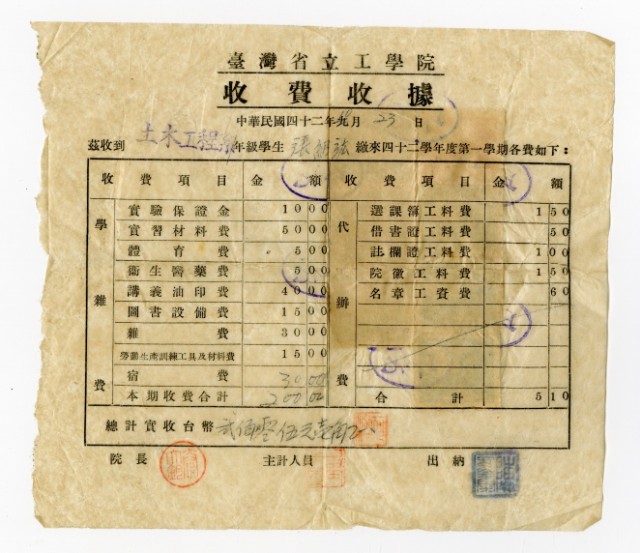 臺灣省立工學院
收費收據
中華民國四十二年九月23日
茲收到 土木工程系 年級學生 張 繳來四十二學年度第一學期各費如下：
收費項目 金額 收費項目 金額
學雜費
實驗保證金 1000
實習材料費 5000
體育費 500
衛生醫藥費 500
講義油印費 4000
圖書設備費 1500
雜費 3000
勞動生產訓練工具及材料費 1500
宿費 3000
本期收費合計 20000
代辦費
選課簿工料費 150
借書證工料費 50
註欄證工料費 100
院徽工料費 150
名章工資費 60
合計 510
總計實收台幣 貳佰零伍元壹角
院長 主計人員 出納